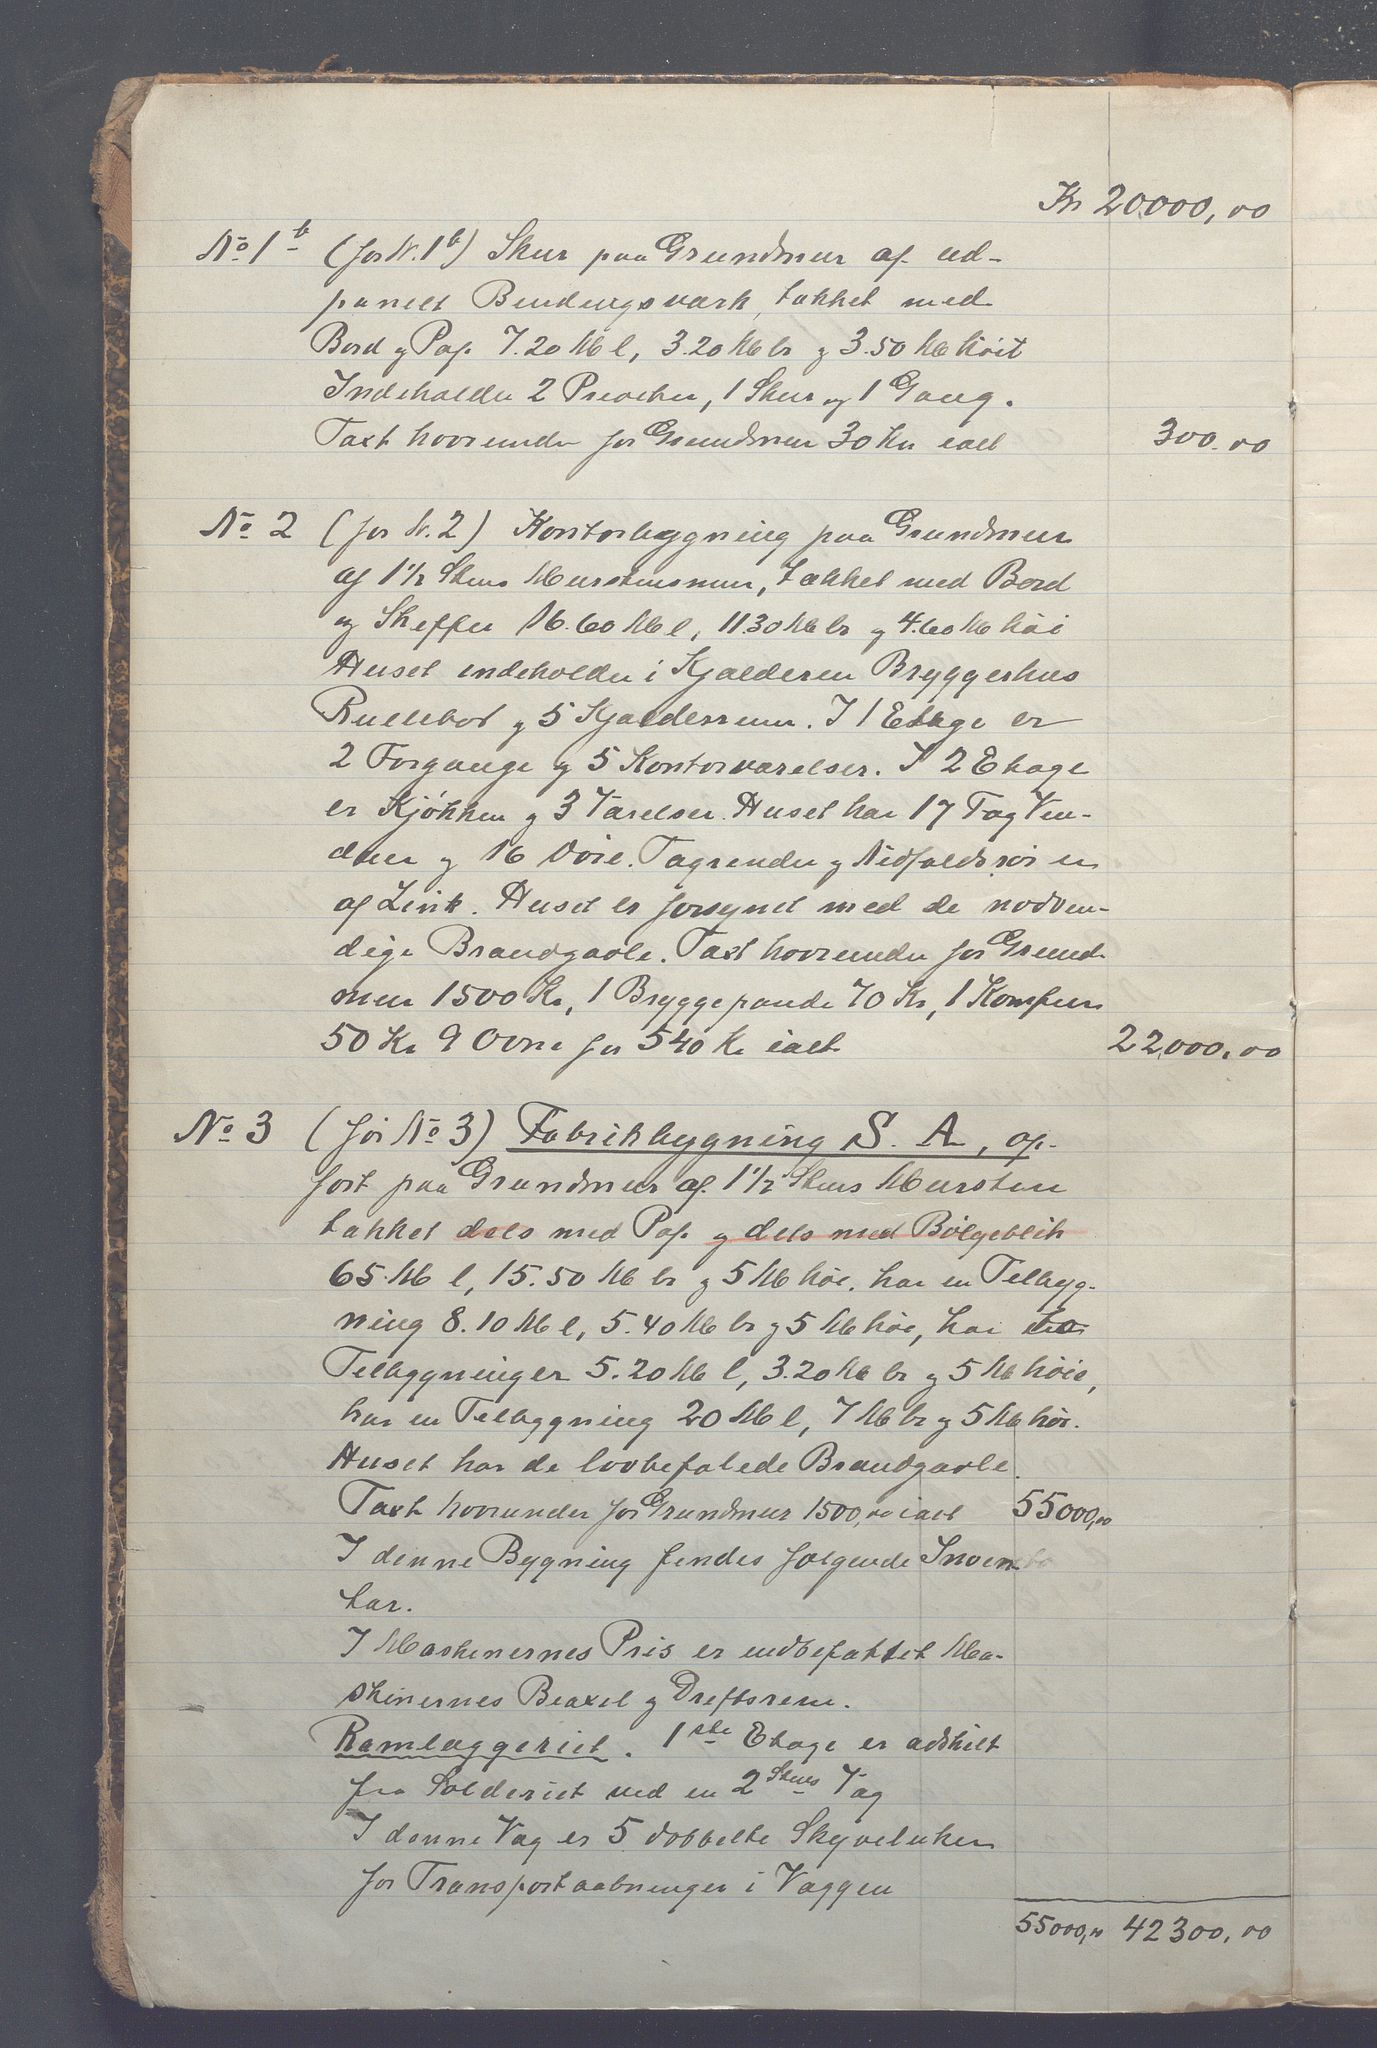 Kr 20000,00
No 1b (før N. 1b) Skur paa Grundmur af ud-
panelt Bindingsværk, tækket med
Bord og Pap 7.20 M l, 3.20 M br og 3.50 M høit
Indeholder 2 Priveter, 1 Skur og 1 Gang.
Taxt hvorunder for Grundmur 30 Kr ialt 300.00
No 2 (før N. 2) Kontorbygning paa Grundmur
af 1 1/2 Stens Murstensmur, tækket med Bord
og Skeffer 16.60 M l, 11.30 M br og 4.60 M høi
Huset indeholder i Kjælderen Bryggerhus
Rullebod og 5 Kjælderrum. I 1 Etage er
2 Forgange og 5 Kontorværelser. I 2 Etage
er Kjøkken og 3 Værelser. Huset har 17 Fag Vin-
duer og 16 Døre. Tagrender og Nedfaldsrør er
af Zink. Huset er forsynet med de nødven-
dige Brandgavle. Taxt hvorunder for Grund-
mur 1500 Kr, 1 Bryggepande 70 Kr, 1 Komfur
50 Kr 9 Ovne for 540 Kr ialt 22000.00
No 3 (før No 3) Fabrikbygning S. A, op-
ført paa Grundmur af 1 1/2 Stens Mursten
tækket dels med Pap og dels med Bølgeblik
65 M l, 15.50 M br og 5 M høi. har en Tilbyg-
ning 8.10 M l, 5.40 M br og 5 M høi, har to
Tilbygninger 5.20 M l, 3.20 M br og 5 M høie,
har en Tilbygning 20 M l, 7 M br og 5 M høi.
Huset har de lovbefalede Brandgavle.
Taxt hvorunder for Grundmur 1500,00 ialt 55000,00
I denne Bygning findes følgende Inven-
tar.
I Maskinernes Pris er indbefattet Ma-
skinernes Beaxel og Driftsrem.
Ramlæggeriet. 1ste Etage er adskilt
fra Solderiet ved en 2 Stens Væg
I denne Væg er 5 dobbelte Skyveluker
for Transportaabninger i Væggen
55000,00 42300,00